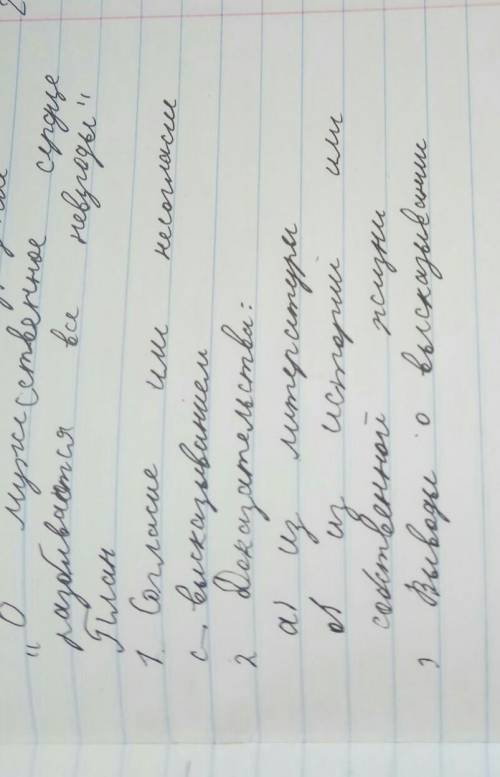 "О мужественное сердце
разбиваются все невзгоды"
План
1. Согласие или несогласие
с высказыванием
2 Доказательства:
а) из литературы
б) из истории или
собственной жизни
3 Выводы о высказывании